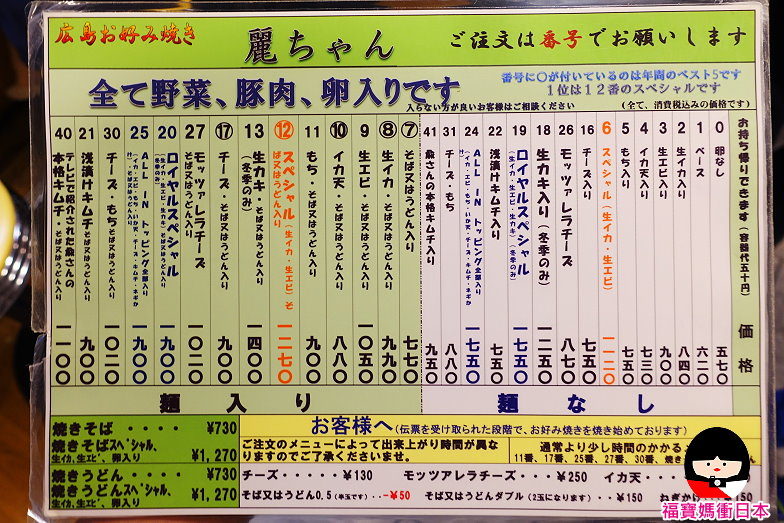 広島お好み焼き
麗ちゃん
ご注文は番号でお願いします
全て野菜、豚肉、卵入りです
入らない方が良いお客様はご相談ください
番号に〇が付いているのは年間のベスト5です
1位は12番のスペシャルです
(全て、消費税込みの価格です)
お持ち帰りできます(容器代五十円)
価格
0 卵なし 五七〇
1 ベース 六二〇
2 生イカ入り 八四〇
3 生エビ入り 九〇〇
4 イカ天入り 七三〇
5 もち入り 七五〇
6 スペシャル(生イカ・生エビ) 一一二〇
16 チーズ入り 七五〇
26 モッツァレラチーズ 八七〇
18 生カキ入り(冬季のみ) 一二五〇
19 ロイヤルスペシャル
(生イカ・生エビ・生カキ)(冬季のみ)
22 浅漬けキムチ入り 七五〇
24 ALL IN トッピング全部入り 一七五〇
31 チーズ・もち 八八〇
41 魚さんの本格キムチ入り 九五〇
麺なし
⑦ そば又はうどん入り 七七〇
⑧ イカ天・そば又はうどん入り
9 生エビ・そば又はうどん入り 一〇五〇
⑩ イカ天・そば又はうどん入り 八八〇
11 もち・そば又はうどん入り 九〇〇
⑫ スペシャル(生イカ・生エビ)そば又はうどん入り 一二七〇
13 生カキ・そば又はうどん入り(冬季のみ) 一四〇〇
⑰ チーズ・そば又はうどん入り 九〇〇
27 モッツァレラチーズ そば又はうどん入り
20 ロイヤルスペシャル
(生イカ・生エビ・生カキ)そば又はうどん入り(冬季のみ)
25 ALL IN トッピング全部入り
30 チーズ・もち そば又はうどん入り 一〇二〇
21 浅漬けキムチ そば又はうどん入り 九〇〇
40 テレビで紹介された魚さんの本格キムチ そば又はうどん入り 一一〇〇
麺入り
焼きそば ・・・・ ¥730
焼きそばスペシャル、
生イカ、生エビ、卵入り ¥1,270
焼きうどん ・・・・ ¥730
焼きうどんスペシャル、
生イカ、生エビ、卵入り ¥1,270
お客様へ(伝票を受け取られた段階で、お好み焼きを焼き始めております)
ご注文のメニューによって出来上がり時間が異な
りますのでご了承くださいませ。
通常より少し時間のかかる
11番、17番、25番、27番、30番、焼き
チーズ・・・・¥130 モッツァレラチーズ・・・¥250 イカ天・・
そば又はうどん0.5(半玉です)・・-¥50 そば又はうどんダブル(2玉になります)・・¥150 ねぎかけ ¥150
福寶媽衝日本